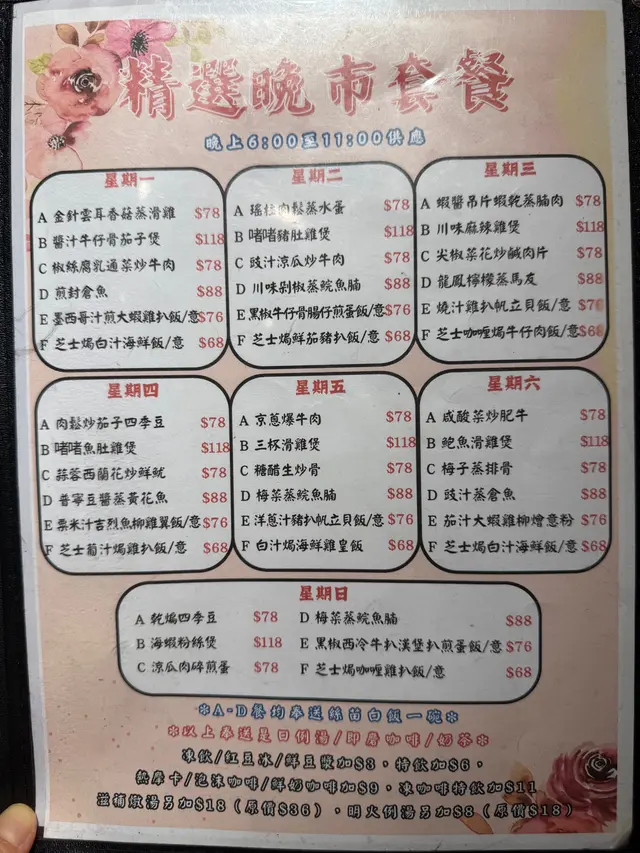 精選晚市套餐
晚上6:00至11:00供應
星期一
A 金針雲耳香菇蒸滑雞 $78
B 醬汁牛仔骨茄子煲 $118
C 椒絲腐乳通菜炒牛肉 $78
D 煎封倉魚 $88
E 墨西哥汁煎大蝦雞扒飯/意 $76
F 芝士焗白汁海鮮飯/意 $68
星期二
A 瑤柱肉鬆蒸水蛋 $78
B 啫啫豬肚雞煲 $118
C 豉汁涼瓜炒牛肉 $78
D 川味剁椒蒸鯇魚腩 $88
E 黑椒牛仔骨腸仔煎蛋飯/意 $76
F 芝士焗鮮茄豬扒飯/意 $68
星期三
A 蝦醬吊片蝦乾蒸腩肉 $78
B 川味麻辣雞煲 $118
C 尖椒菜花炒鹹肉片 $78
D 龍鳳檸檬蒸馬友 $88
E 燒汁雞扒帆立貝飯/意 $76
F 芝士咖喱焗牛仔肉飯/意 $68
星期四
A 肉鬆炒茄子四季豆 $78
B 啫啫魚肚雞煲 $118
C 蒜蓉西蘭花炒鮮魷 $78
D 普寧豆醬蒸黃花魚 $88
E 粟米汁吉烈魚柳雞翼飯/意 $76
F 芝士葡汁焗雞扒飯/意 $68
星期五
A 京蔥爆牛肉 $78
B 三杯滑雞煲 $118
C 糖醋生炒骨 $78
D 梅菜蒸鯇魚腩 $88
E 洋蔥汁豬扒帆立貝飯/意 $76
F 白汁焗海鮮雞皇飯 $68
星期六
A 咸酸菜炒肥牛 $78
B 鮑魚滑雞煲 $118
C 梅子蒸排骨 $78
D 豉汁蒸倉魚 $88
E 茄汁大蝦雞柳燴意粉 $76
F 芝士焗白汁海鮮飯/意 $68
星期日
A 乾煸四季豆 $78
B 海蝦粉絲煲 $118
C 涼瓜肉碎煎蛋 $78
D 梅菜蒸鯇魚腩 $88
E 黑椒西冷牛扒漢堡扒煎蛋飯/意 $76
F 芝士焗咖喱雞扒飯/意 $68
※A-D餐均奉送絲苗白飯一碗※
※以上奉送是日例湯/即磨咖啡/奶茶※
凍飲/紅豆冰/鮮豆漿加$3，特飲加$6，
熱摩卡/泡沫咖啡/鮮奶咖啡加$9，凍咖啡特飲加$11
滋補燉湯另加$18（原價$36），明火例湯另加$8（原價$18）